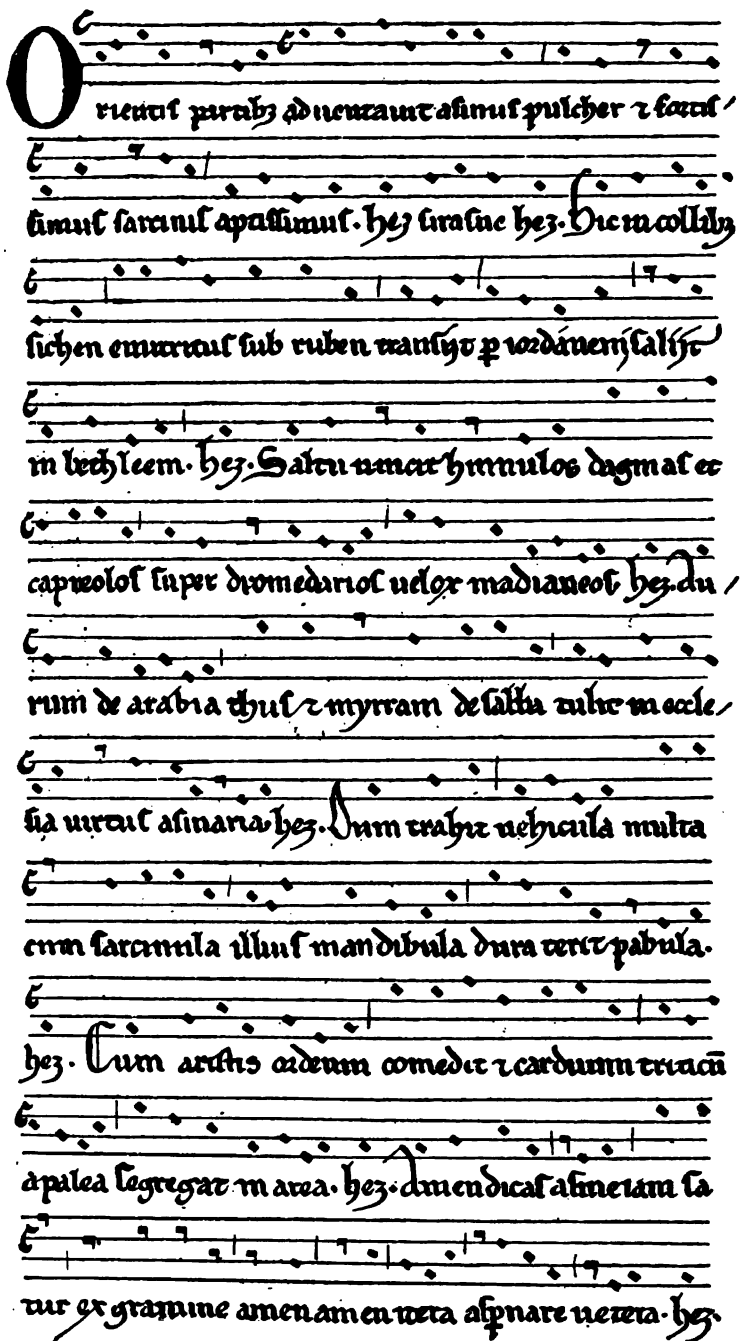 Orientis partibꝫ aduentauit asinus pulcher ⁊ fortis/
simus sarcinis aptissimus. heꝫ sirasne heꝫ. Hic in collibꝫ
sichen enutritus sub ruben transijt ꝑ iordanem saliit
in bethleem. heꝫ. Saltu uincit hinnulos dagmas et
capreolos super dromedarios uelox madianeos heꝫ. Au/
rum de arabia thus ⁊ myrram de sabba tulit in eccle/
sia uirtus asinaria heꝫ. Dum trahit uehicula multa
cum sarcinula illius mandibula dura terit pabula.
heꝫ. Cum aristis ordeum comedit ⁊ carduum triticū
a palea segregat in area. heꝫ. Amen dicas asine iam sa
tur ex gramine amen amen itera aspnare uetera. heꝫ.